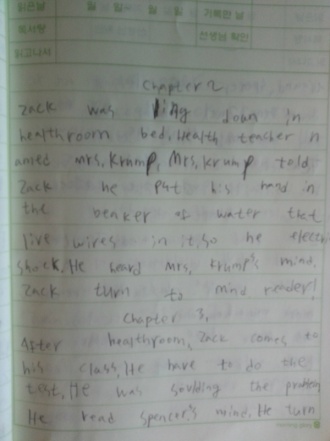 읽은날 월 일~ 월 일 기록한 날
독서량 선생님 확인
읽고나서
Chapter 2
Zack was ling down in
healthroom bed, Health teacher n
amed Mrs, Krump, Mrs, Krump told
Zack he put his hand in
the beaker of water that
live wires in it, so he electri
shock, He heard Mrs, Krump's mind.
Zack turn to mind reader!
Chapter 3,
After healthroom, Zack comes to
his class, He have to do the
test, He was soulding the problem
He read Spencer's mind. He turn